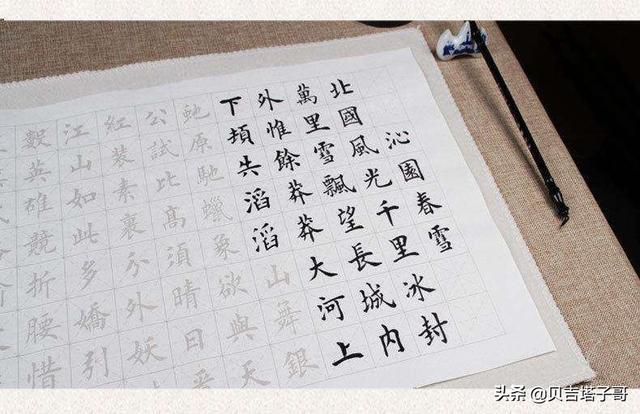 沁園春雪
北國風光千里冰封
萬里雪飄望長城内
外惟餘莽莽大河上
下頓失滔滔山舞銀
虵原馳蠟象欲與天
公試比高須晴日
紅裝素裹分外妖
江山如此多嬌引
數英雄競折腰惜
头条 @贝吉塔子哥